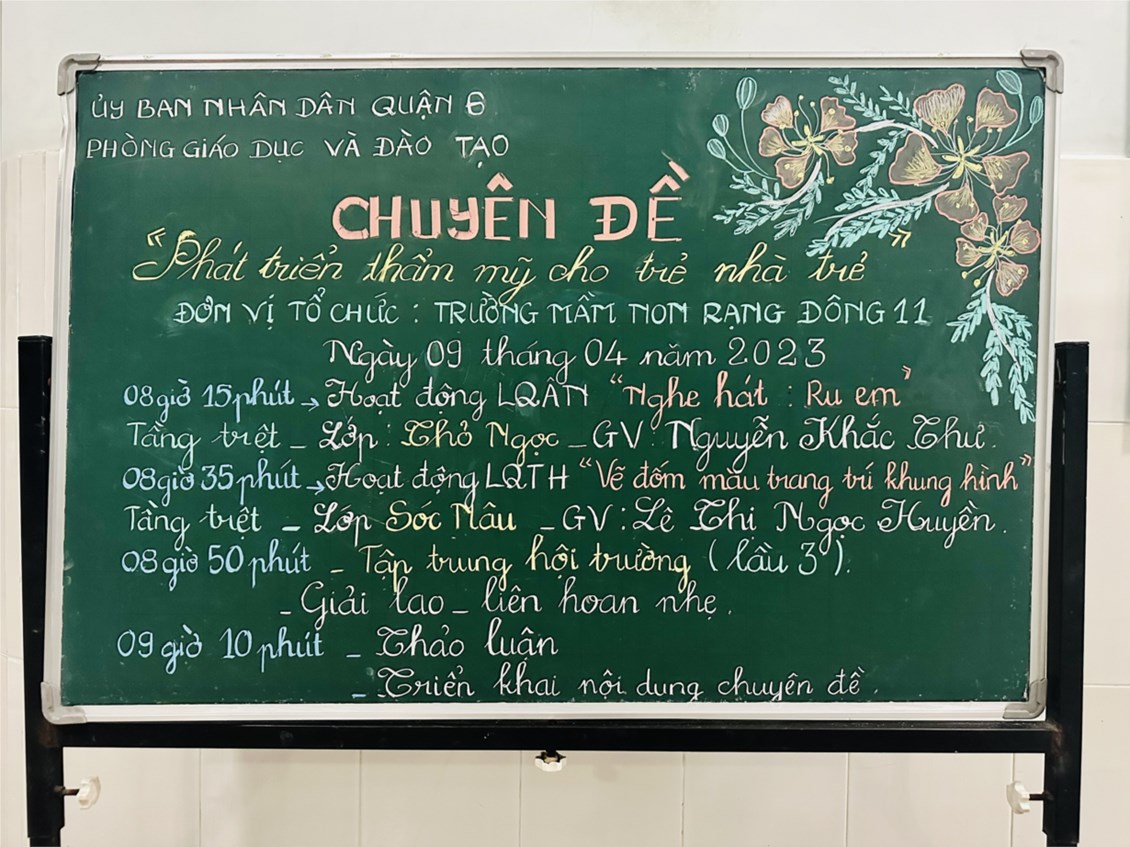 ỦY BAN NHÂN DÂN QUẬN 6
PHÒNG GIÁO DỤC VÀ ĐÀO TẠO
CHUYÊN ĐỀ
"Phát triển thẩm mỹ cho trẻ nhà trẻ"
ĐƠN VỊ TỔ CHỨC : TRƯỜNG MẦM NON RẠNG ĐÔNG 11
Ngày 09 tháng 04 năm 2023
08 giờ 15 phút → Hoạt động LQÂN "Nghe hát : Ru em"
Tầng trệt - Lớp : Thỏ Ngọc - GV : Nguyễn Khắc Thư.
08 giờ 35 phút → Hoạt động LQTH "Vẽ đốm màu trang trí khung hình"
Tầng trệt - Lớp Sóc Nâu - GV : Lê Thi Ngọc Huyền.
08 giờ 50 phút - Tập trung hội trường (lầu 3).
- Giải lao - liên hoan nhẹ.
09 giờ 10 phút - Thảo luận
- Triển khai nội dung chuyên đề.